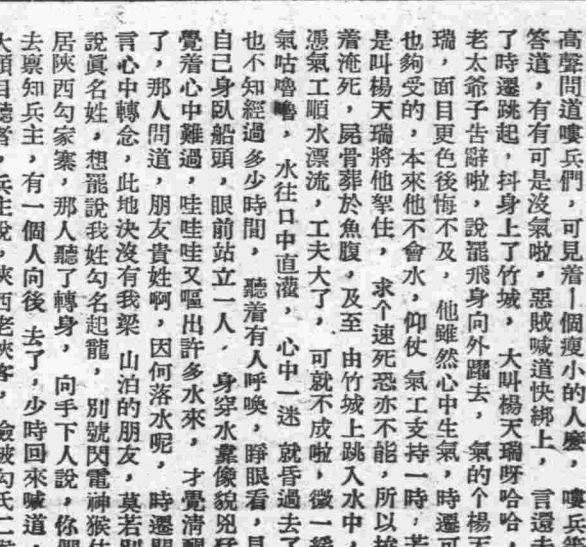 高聲問道嘍兵們，可見着一個瘦小的人麽，嘍兵
答道，有有可是沒氣啦，惡賊喊道快綁上，言還未
了時遷跳起，抖身上了竹城，大叫楊天瑞呀哈哈，
老太爺子告辭啦，說罷飛身向外躍去，氣的个楊天
瑞，面目更色後悔不及，他雖然心中生氣，時遷可
也夠受的，本來他不會水，仰仗氣工支持一時，若
是叫楊天瑞將他挐住，求个速死恐亦不能，所以
着淹死，屍骨葬於魚腹，及至由竹城上跳入水中，
憑氣工順水漂流，工夫大了，可就不成啦，微一緩
氣咕嚕嚕，水往口中直灌，心中一迷就昏過去了
也不知經過多少時間，聽着有人呼喚，睜眼看，見
自己身臥船頭，眼前站立一人，身穿水靠像貌兇猛
覺着心中難過，哇哇哇又嘔出許多水來，才覺清醒
了，那人問道，朋友貴姓啊，因何落水呢，時遷聞
言心中轉念，此地決沒有我梁山泊的朋友，莫若別
說眞名姓，想罷說我姓勾名起龍，別號閃電神猴
居陜西勾家寨，那人聽了轉身，向手下人說，你們
去稟知兵主，有一個人向後去了，少時回來喊道，
大頭目聽着，兵主說，陜西老俠客，